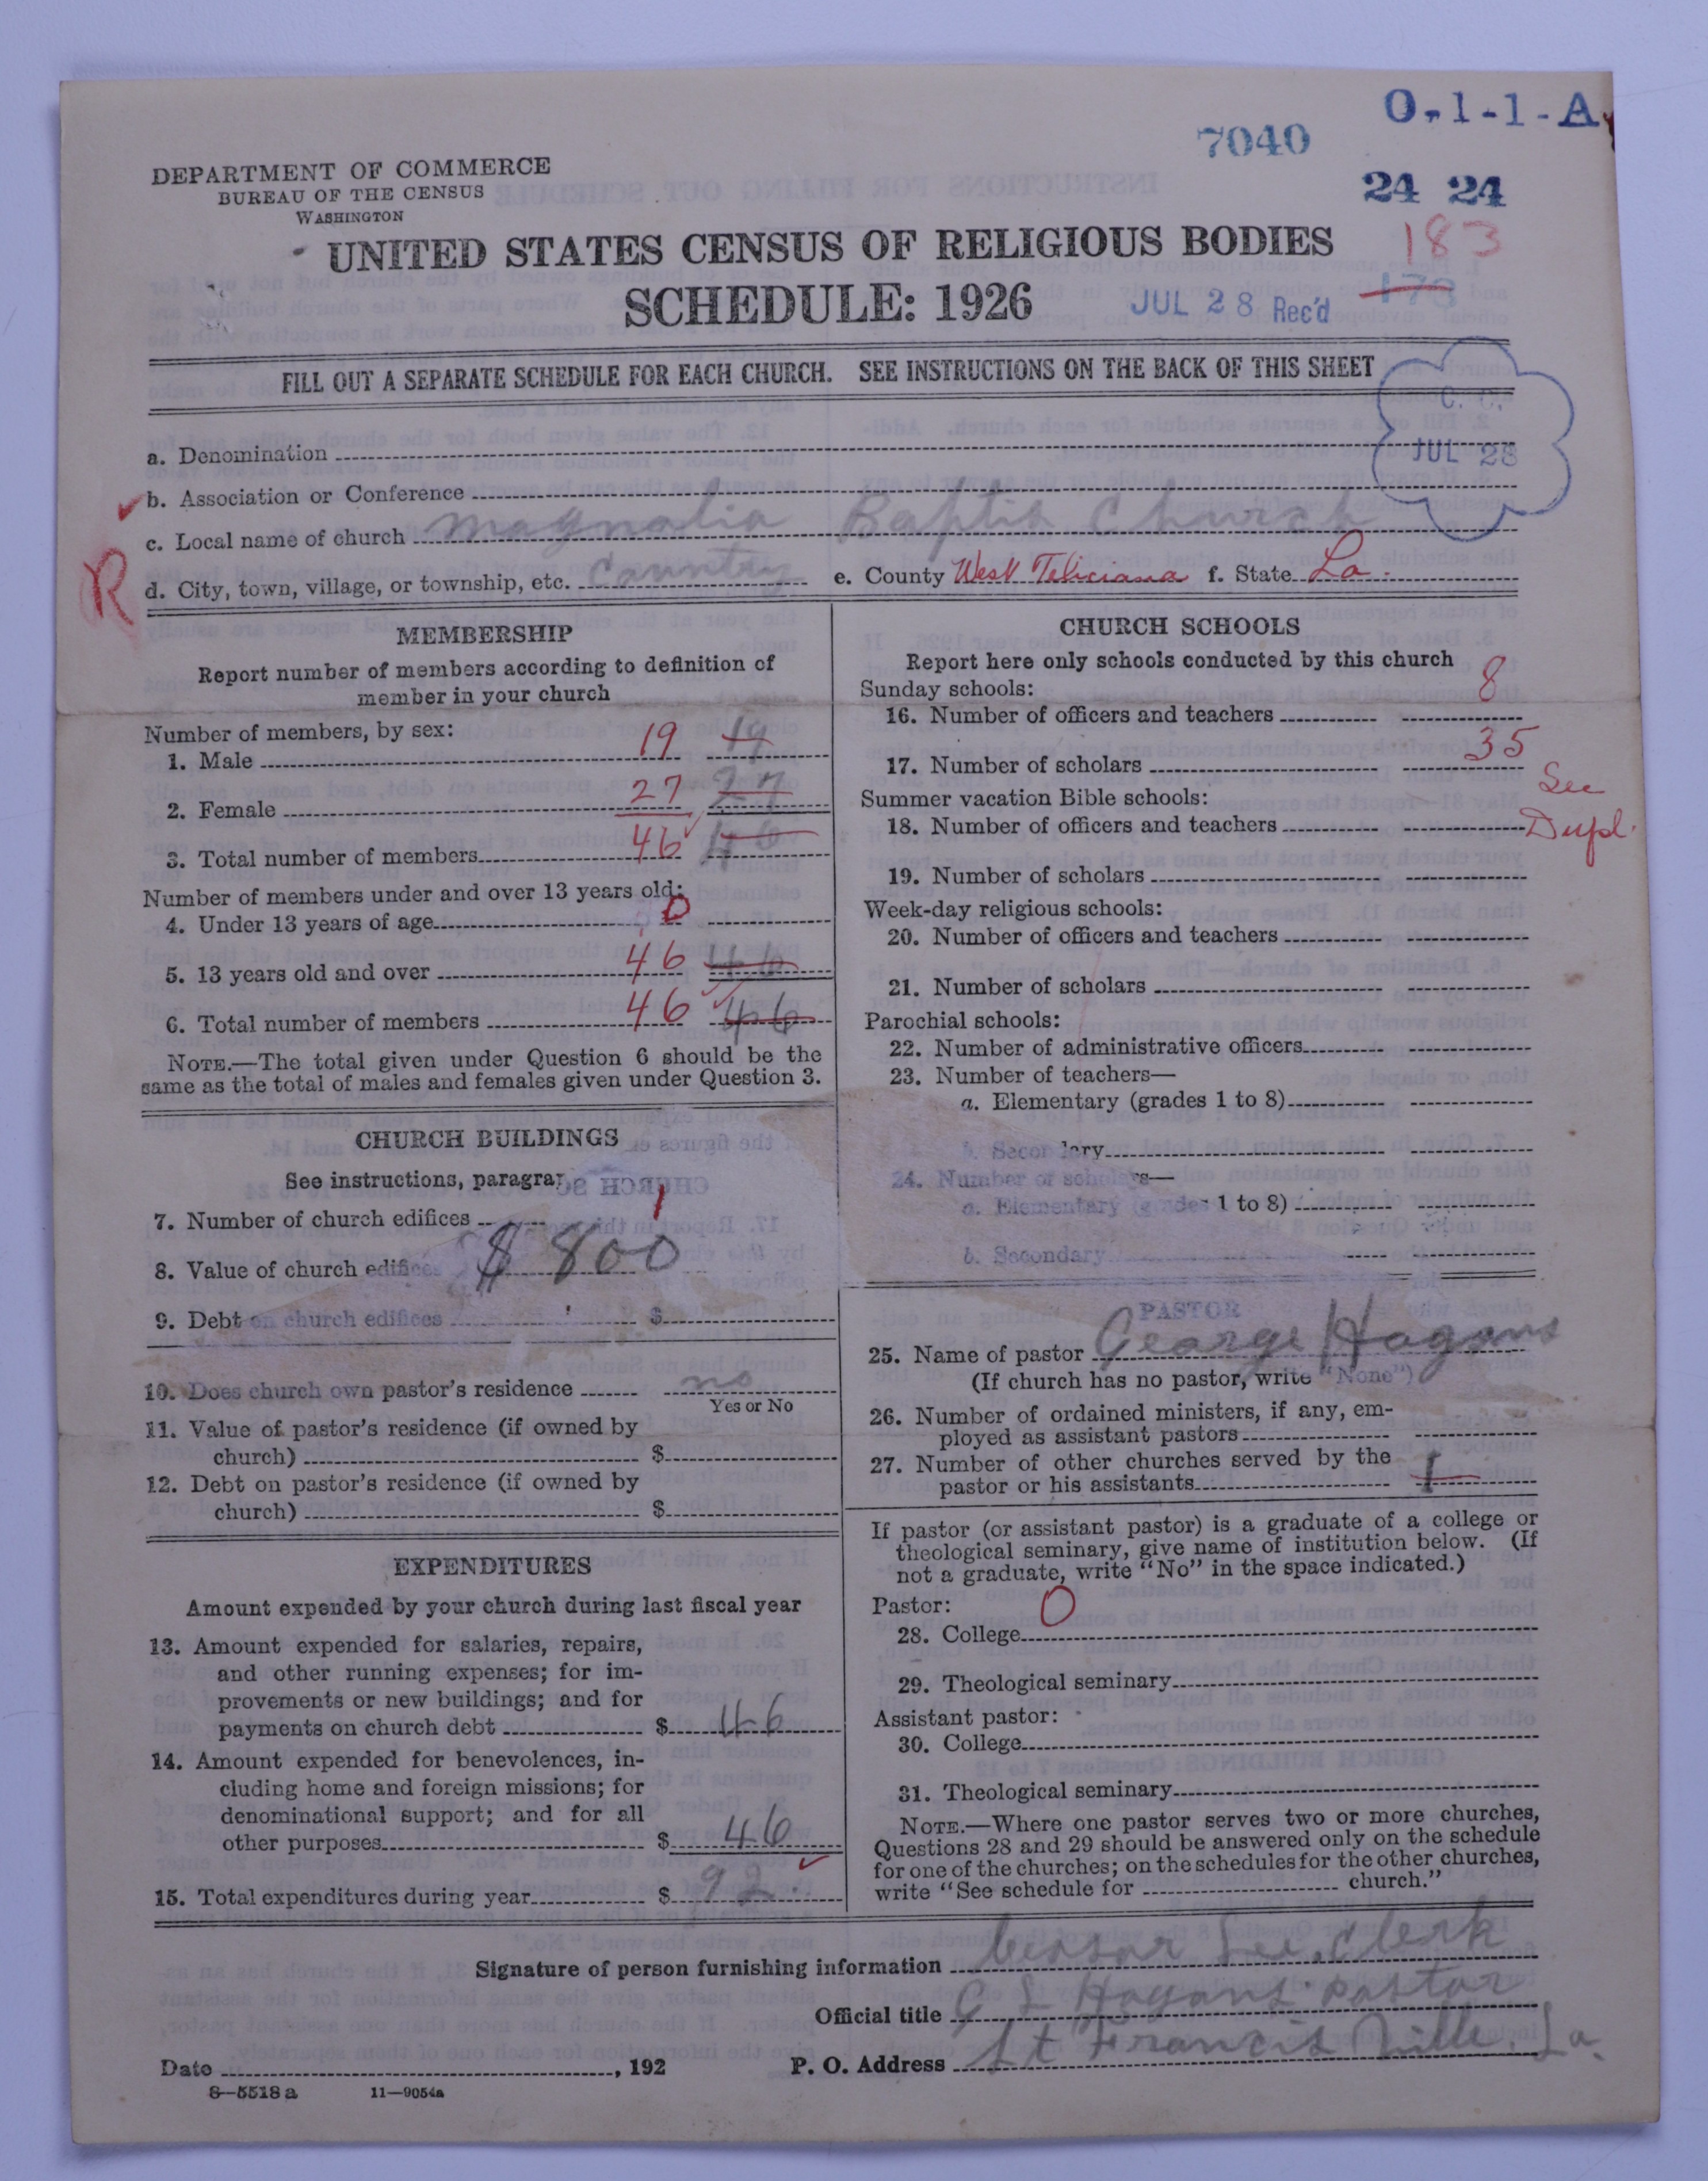 O-1-1-A
7040
24 24
DEPARTMENT OF COMMERCE
BUREAU OF THE CENSUS
WASHINGTON
183
UNITED STATES CENSUS OF RELIGIOUS BODIES
SCHEDULE: 1926
JUL 28 Rec'd
173
FILL OUT A SEPARATE SCHEDULE FOR EACH CHURCH. SEE INSTRUCTIONS ON THE BACK OF THIS SHEET
C. C.
JUL 28
a. Denomination
b. Association or Conference
c. Local name of church Magnolia Baptis Church
R
d. City, town, village, or township, etc. Country e. County West Feliciana f. State La.
MEMBERSHIP
Report number of members according to definition of
member in your church
Number of members, by sex:
1. Male 19 19
2. Female 27 27
3. Total number of members 46 46
Number of members under and over 13 years old:
4. Under 13 years of age 0
5. 13 years old and over 46 46
6. Total number of members 46 46
NOTE.—The total given under Question 6 should be the
same as the total of males and females given under Question 3.
CHURCH BUILDINGS
See instructions, paragra
7. Number of church edifices 1
8. Value of church edifices $ 800
9. Debt on church edifices $
10. Does church own pastor's residence no
Yes or No
11. Value of pastor's residence (if owned by
church) $
12. Debt on pastor's residence (if owned by
church) $
EXPENDITURES
Amount expended by your church during last fiscal year
13. Amount expended for salaries, repairs,
and other running expenses; for im-
provements or new buildings; and for
payments on church debt $ 46
14. Amount expended for benevolences, in-
cluding home and foreign missions; for
denominational support; and for all
other purposes $ 46
15. Total expenditures during year $ 92.
CHURCH SCHOOLS
Report here only schools conducted by this church
Sunday schools:
16. Number of officers and teachers 8
17. Number of scholars 35
See
Dupl.
Summer vacation Bible schools:
18. Number of officers and teachers
19. Number of scholars
Week-day religious schools:
20. Number of officers and teachers
21. Number of scholars
Parochial schools:
22. Number of administrative officers
23. Number of teachers—
a. Elementary (grades 1 to 8)
b. Secondary
24. Number of scholars—
a. Elementary (grades 1 to 8)
b. Secondary
PASTOR
25. Name of pastor George Hogans
(If church has no pastor, write "None")
26. Number of ordained ministers, if any, em-
ployed as assistant pastors
27. Number of other churches served by the
pastor or his assistants 1
If pastor (or assistant pastor) is a graduate of a college or
theological seminary, give name of institution below. (If
not a graduate, write "No" in the space indicated.)
Pastor: 0
28. College
29. Theological seminary
Assistant pastor:
30. College
31. Theological seminary
NOTE.—Where one pastor serves two or more churches,
Questions 28 and 29 should be answered only on the schedule
for one of the churches; on the schedules for the other churches,
write "See schedule for church."
Signature of person furnishing information Ceasar Lee, Clerk
Official title G L Hogans pastor
Date , 192 P. O. Address St Francis Ville. La.
8—5518 a 11—9054a